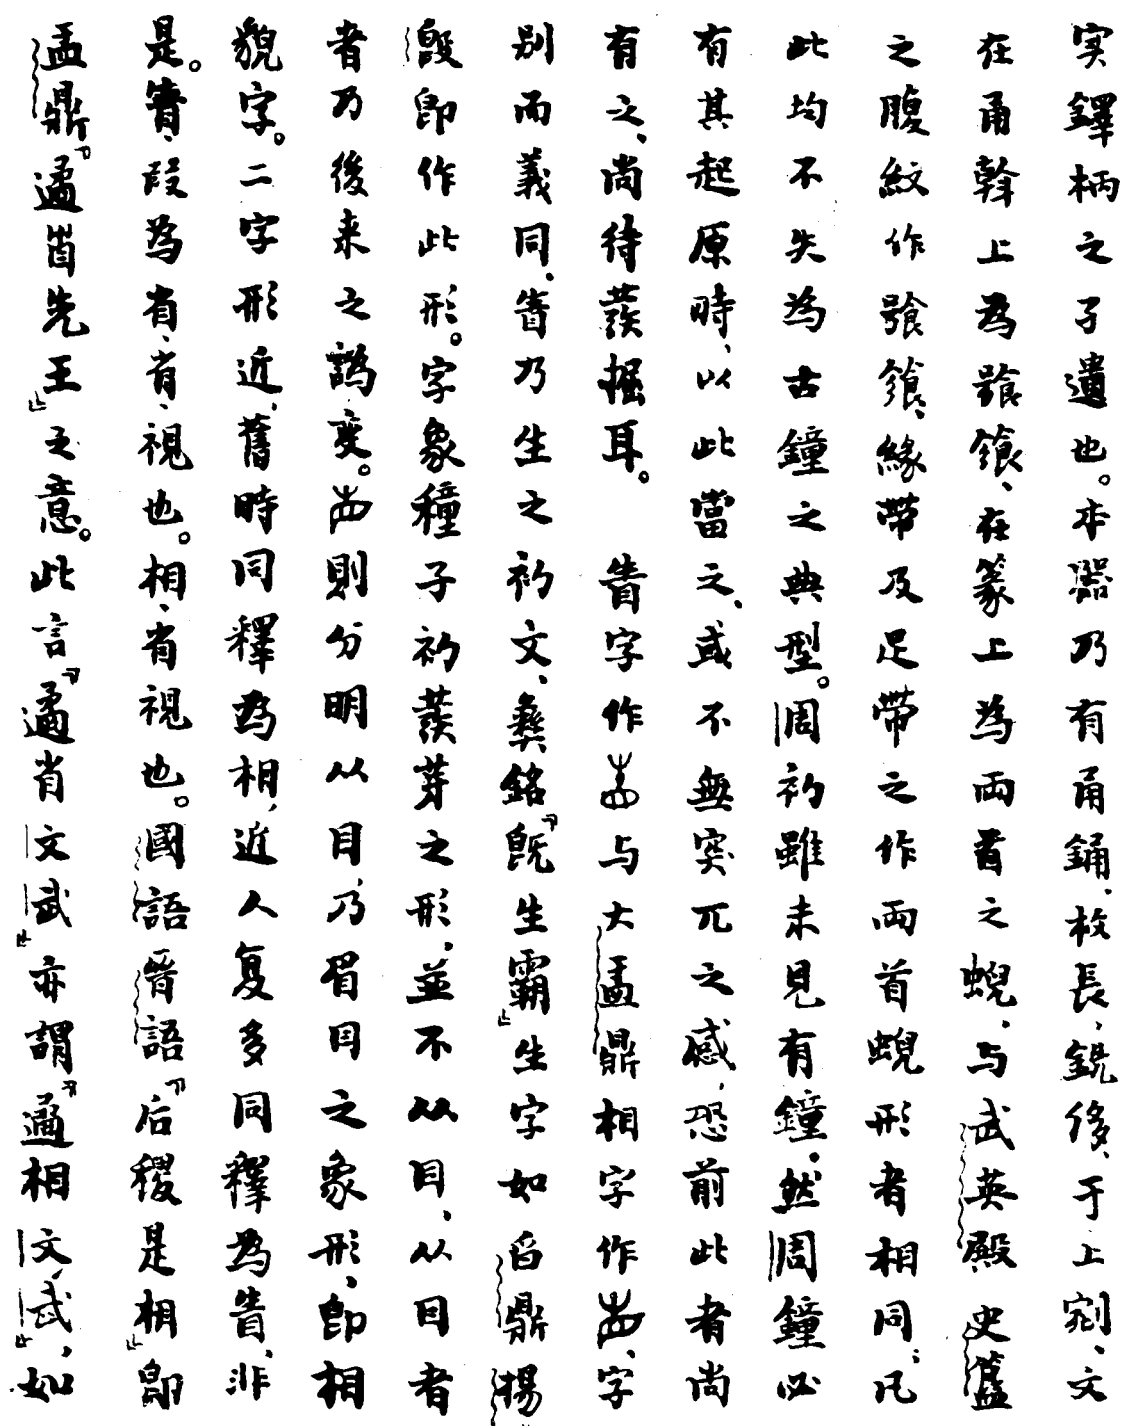 实鐸柄之孑遺也。本器乃有甬鏞、枚長,銑侈、于上剜、文
在甬斡上為飻、在篆上為兩首之蜺、与武英殿 史簠
之腹紋作飻、緣帶及足帶之作兩首蜺形者相同;凡
此均不失為古鐘之典型。周初雖未見有鐘。然周鐘必
有其起原時、以此當之、或不無突兀之感,恐前此者尚
有之、尚待蕟掘耳。 眚字作与大盂鼎相字作、字
別而義同、眚乃生之初文、彝銘『旣生霸』生字如𦣞鼎揚
𣪘即作此形。字象種子初蕟芽之形,並不从目、从目者
者乃後来之譌变。則分明从目,乃眉目之象形、即相
䫉字。二字形近,舊時同釋為相,近人复多同釋為眚、非
是。眚、段為省、省、視也。相、省視也。國語晉語『后稷是相』即
盂鼎『遹眚先王』之意。此言『遹省文武』亦謂『遹相文,武』,如